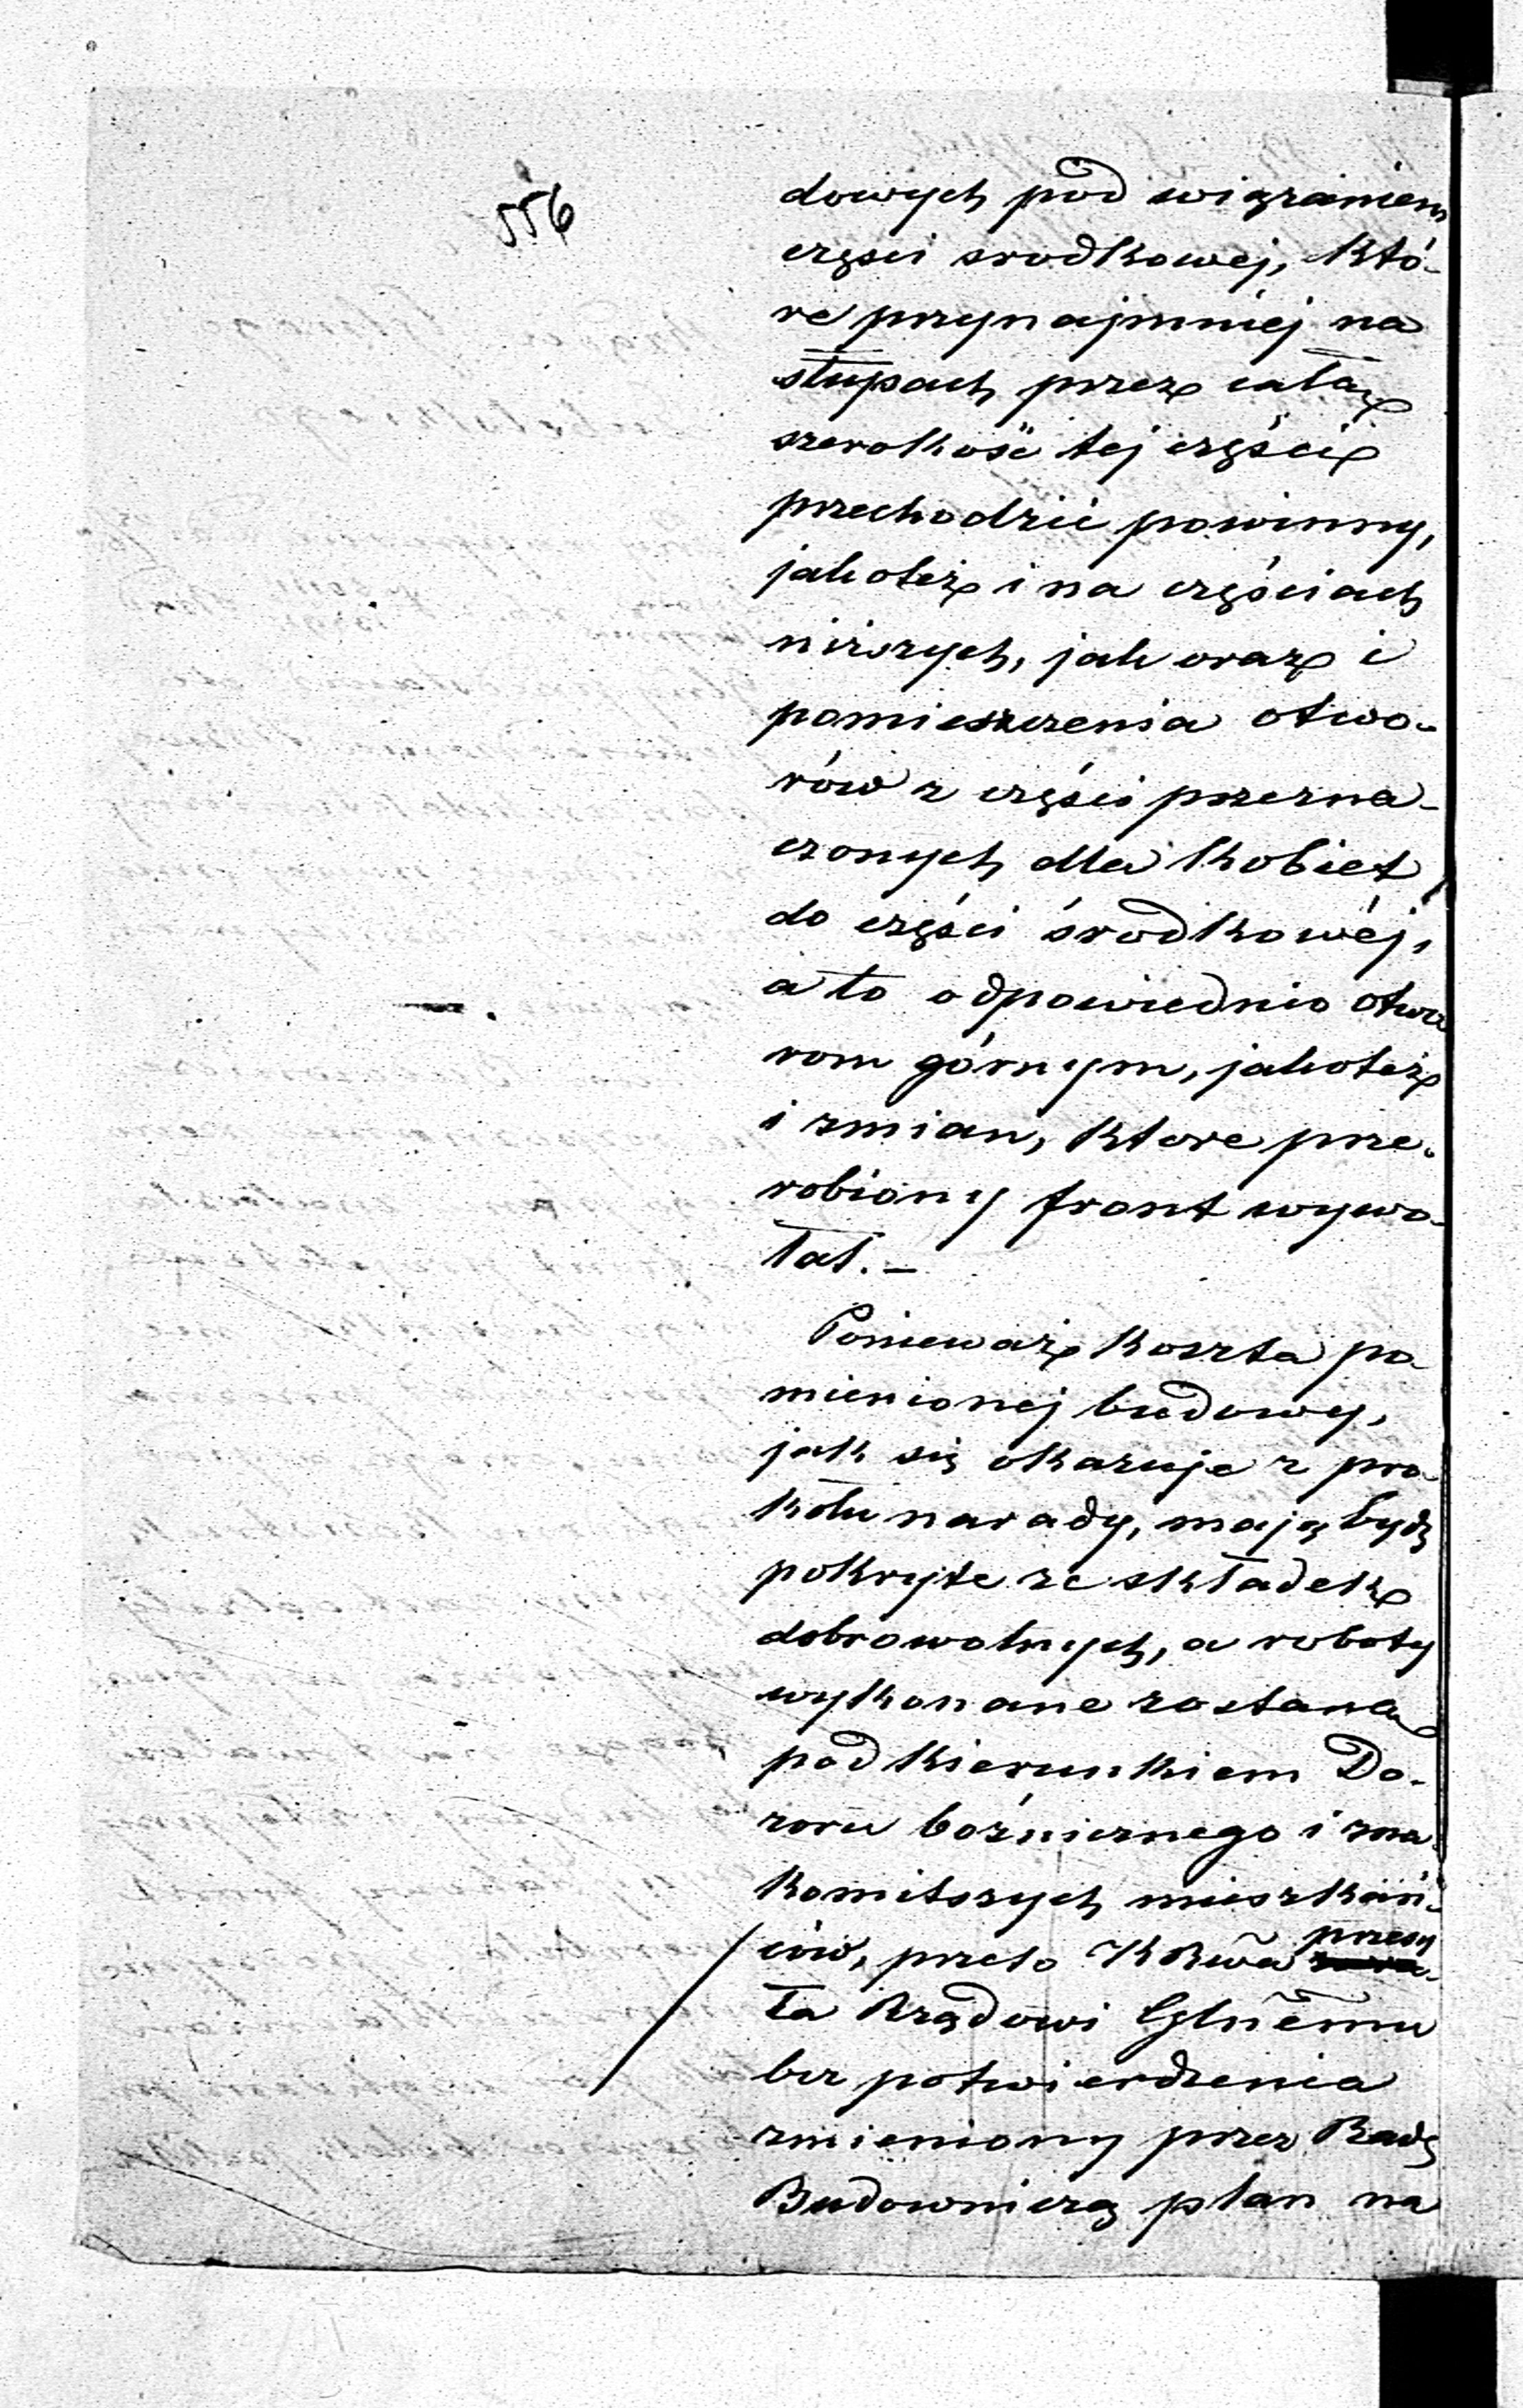 556
dowych pod wiązaniem
części srodkowej, któ-
re przynajmniej na
słupach przez całą
szerokość tej części
przechodzić powinny,
jakoteż i na częściach
niższych, jak oraz i
pomieszczenia otwo-
rów z części przezna-
czonych dla kobiet
do części środkowéj,
a to odpowiednio otwo
rom górnym, jakoteż
i zmian, ktore prze-
robiony front wywo-
łał. –
Ponieważ koszta po-
mienionej budowy,
jak się okazuje z pro
kółu narady, mają bydź
pokryte ze składek
dobrowolnych, a roboty
wykonane zostaną
pod kierunkiem Do-
zoru bóżniczego i zna
komitszych mieszkań-
ców, przeto KRwa przesy
ła Rządowi Gblnemu
bez potwierdzenia
zmieniony przez Radę
Budowniczą plan na